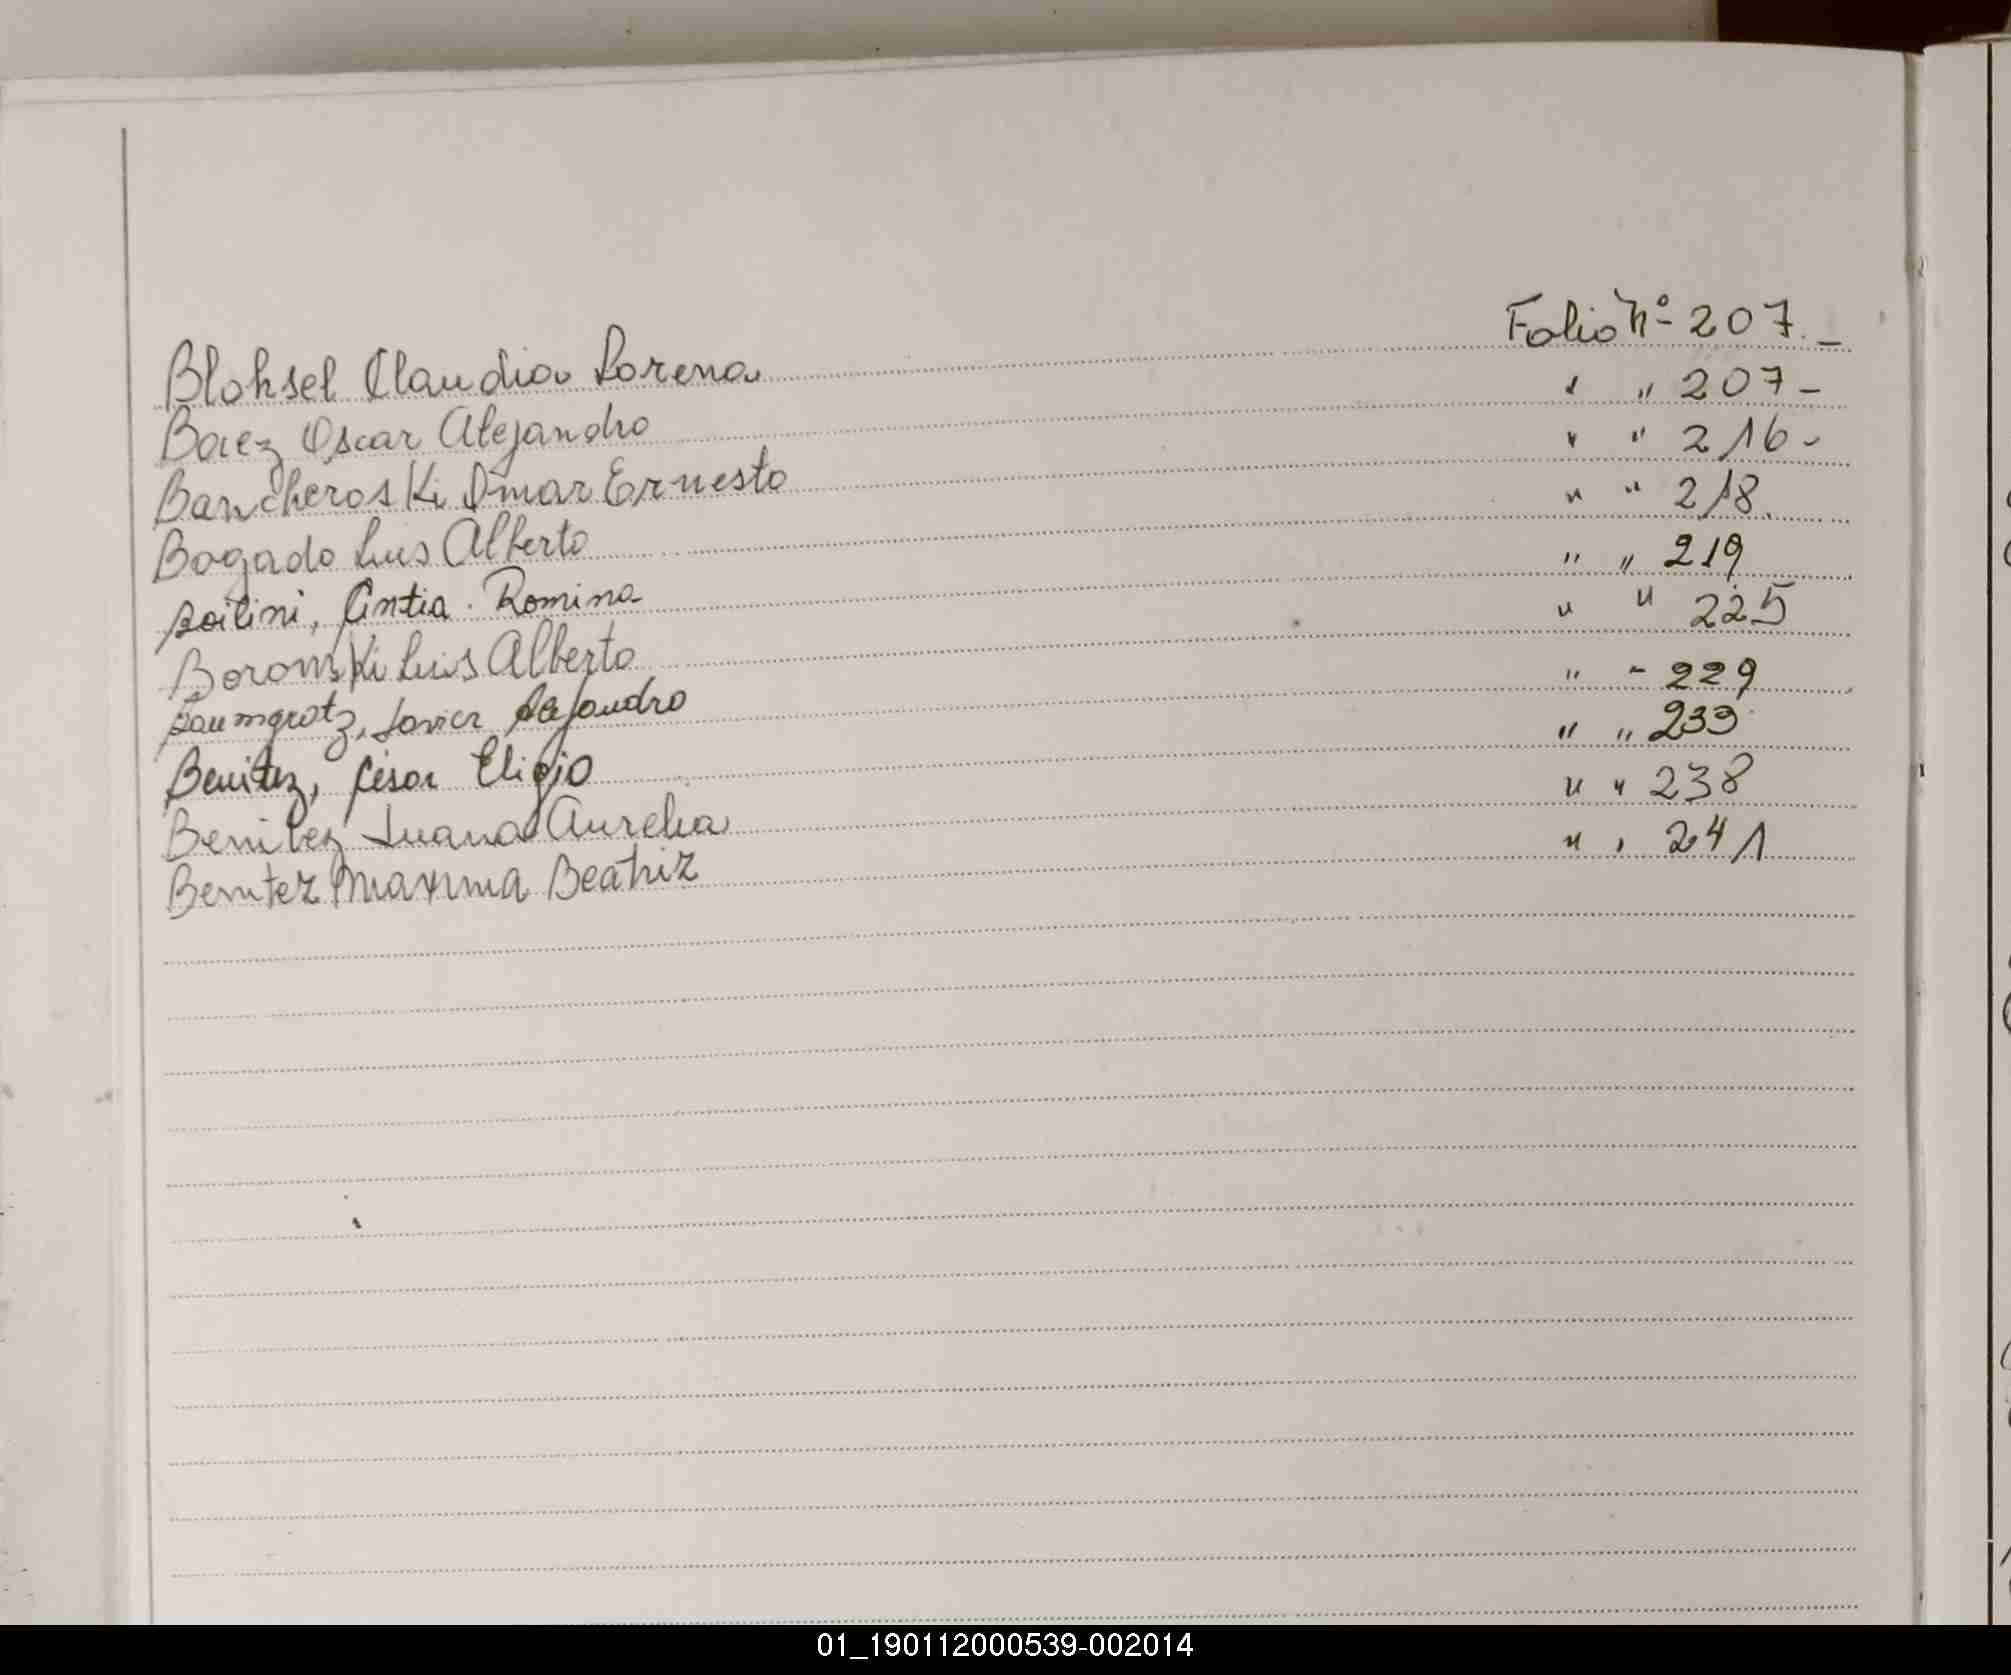 Blohsel Claudia Lorena Folio Nº 207.-
Baez Oscar Alejandro " " 207-
Bancheroski Omar Ernesto " " 216-
Bogado Luis Alberto " " 218.
Boilini, Cintia. Romina " " 219
Borowski Luis Alberto " " 225
Baumgrotz, Javier Alejandro " " 229
Benitez, César Eligio " " 233
Benitez Juana Aurelia " " 238
Benitez Maxima Beatriz " " 241
01_190112000539-002014